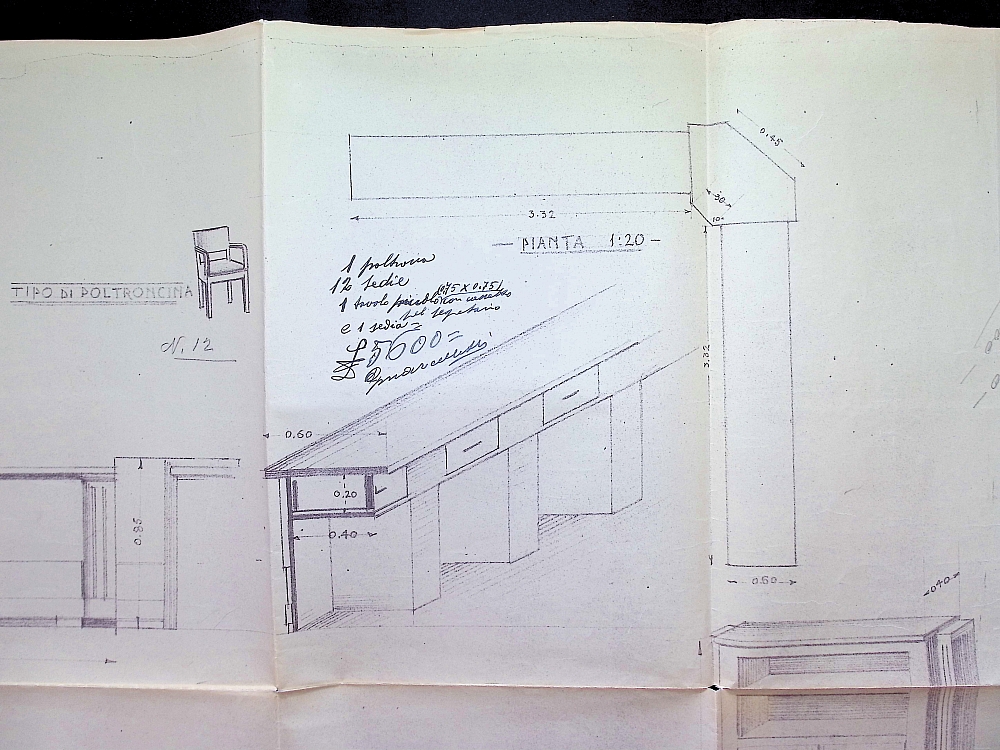 0.45
30
10°
3.32
PIANTA 1:20
1 poltrona
12 sedie
1 tavolo piccolo con cassetto
0,75 X 0,75
pel segretario
e 1 sedia =
£ 5600=
TIPO DI POLTRONCINA
N. 12
3.32
0.60
0.20
0.85
0.40
0.60
0.40